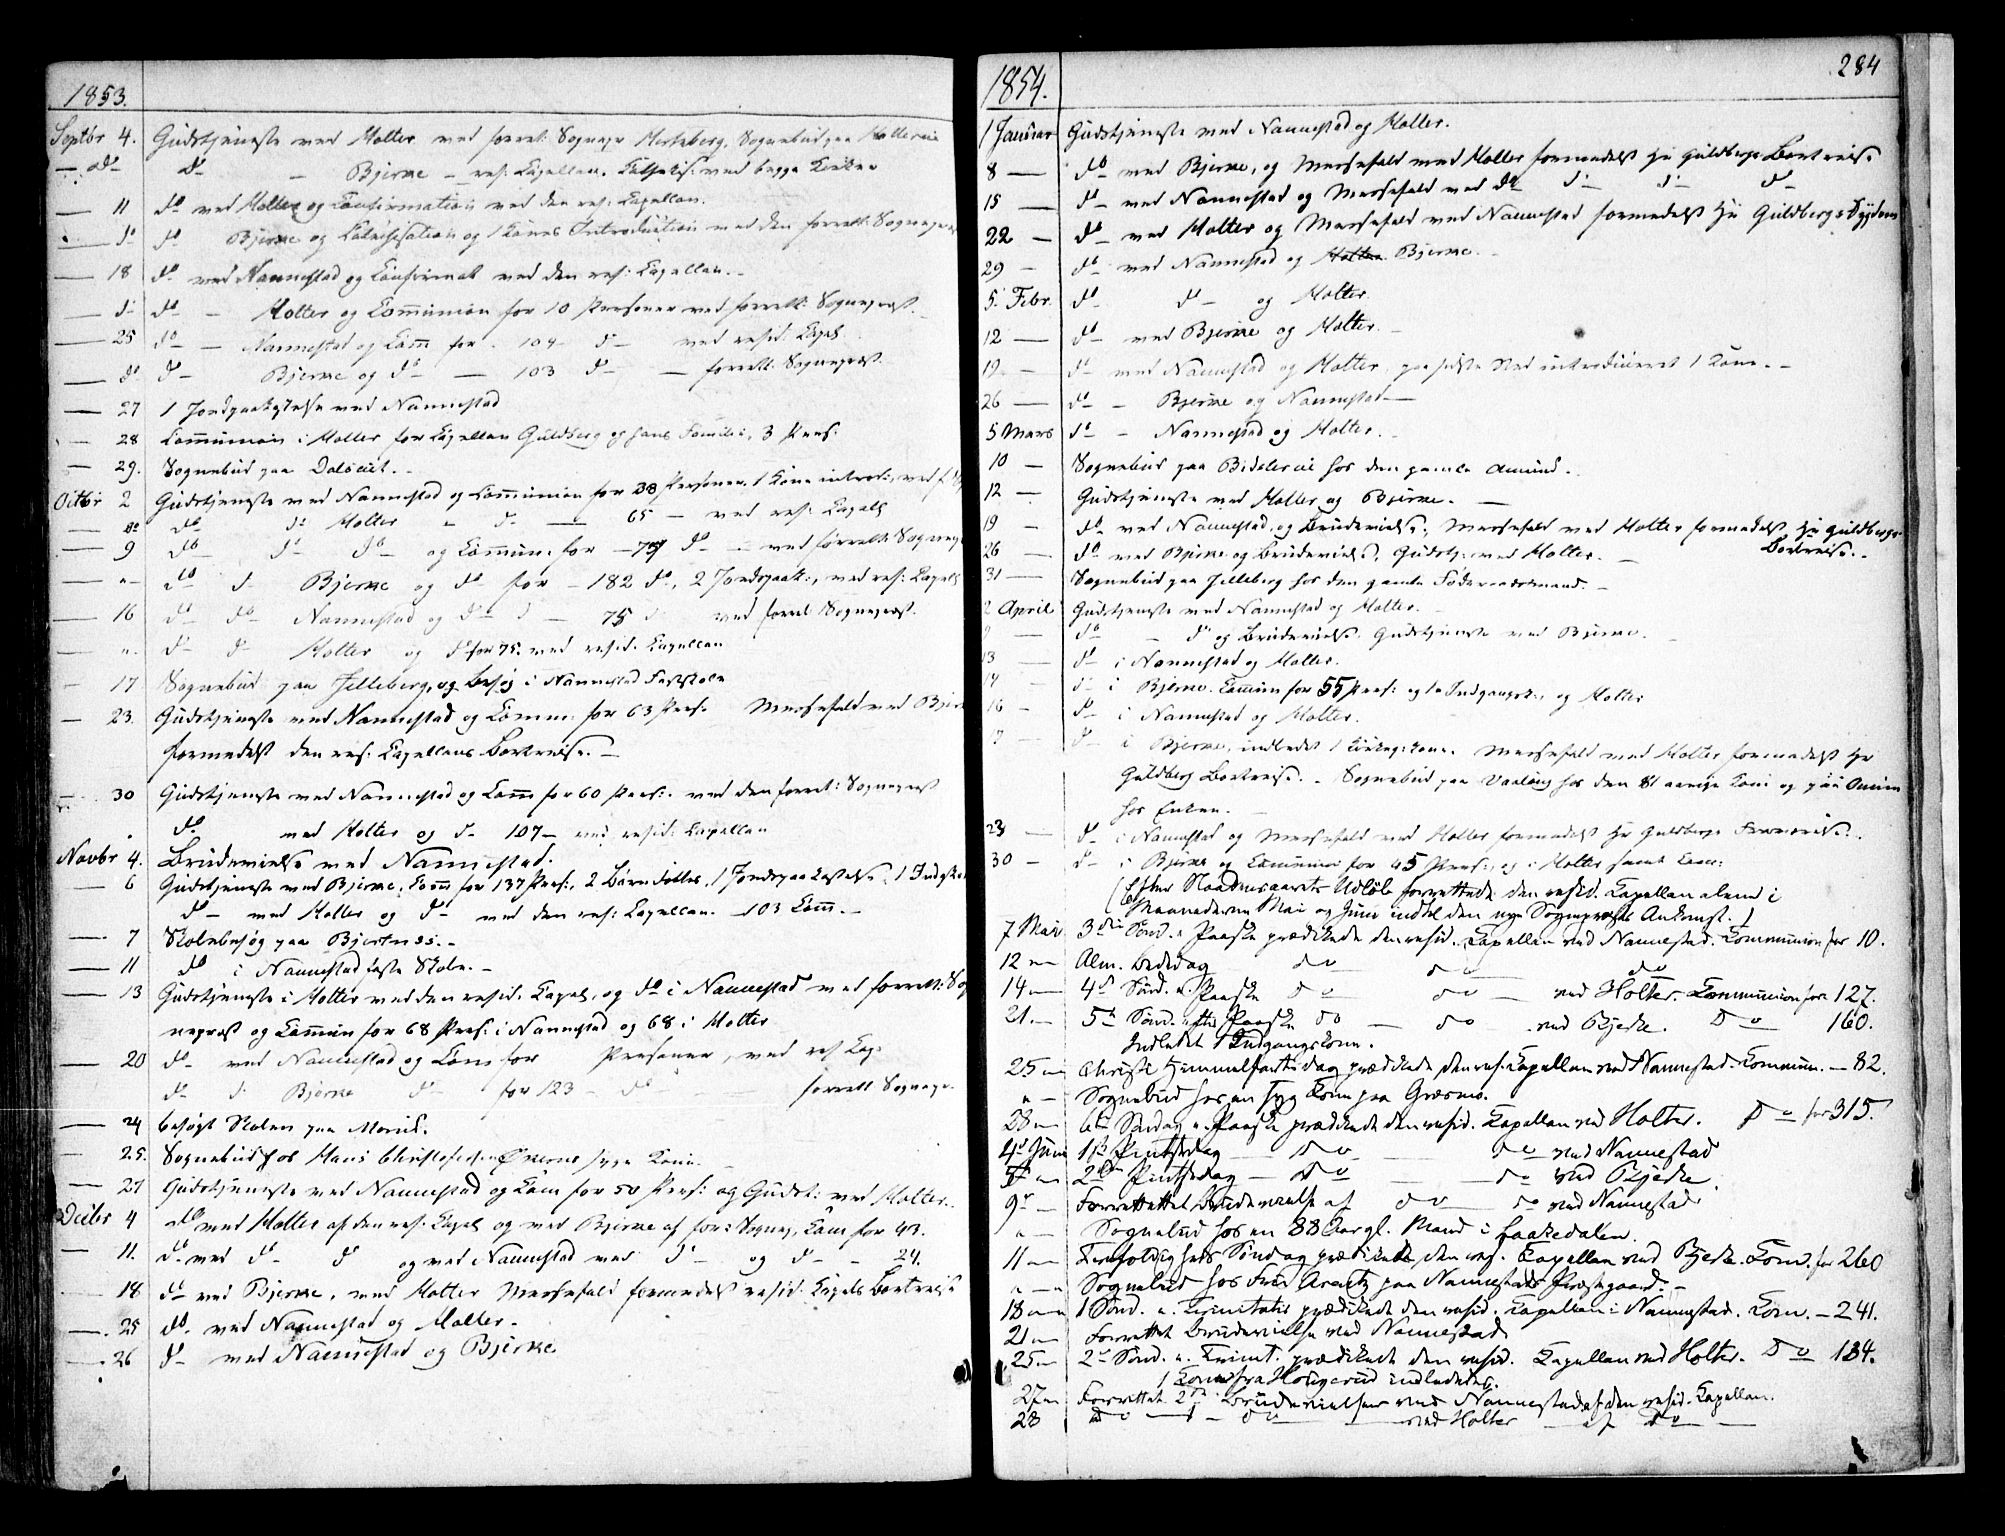 1853.
Septbr 4. Gudstjeneste ved Holter ved forrett: Sognepr Hertzberg, Sognebud paa
— do do — Bjerke — res: Capellan. Catechis: ved begge Kirker
— 11 do ved Holter og Confirmation ved den res: Capellan.
— do do Bjerke og Catechisation og 1 Kones Introduction ved den forrett: Sognepræst
— 18 do ved Nannestad og Confirmat ved den res: Capellan. –
— do do — Holter og Communion for 10 Personer ved forrett: Sognepræst.
— 25 do — Nannestad og Com for 104 do — ved resid: Capel.
— do do — Bjerke og do — 103 do — forrett: Sognepræst.
— 27 1 Jordpaakastelse ved Nannestad
— 28 Communion i Holter for Capellan Guldberg og hans Familie, 3 Pers:
— 29. Sognebud paa
Octbr 2 Gudstjeneste ved Nannestad og Communion for 38 Personer. 1 Kone introd:, ved
— do do do Holter — do — 65 — ved res: Capell
— 9 do do do og Commun: for — 79 do — ved forrett: Sognepr
— " — do do Bjerke og do for — 182 do, 2 Jordpaak:, ved res: Capell
— 16 do do Nannestad og do do — 75 do ved forret: Sognepræst.
— " do do Holter og do for 75. ved resid: Capellan
— 17 Sognebud paa Jelleberg, og besøg i Nannestad Fastskole
— 23. Gudstjeneste ved Nannestad og Comm: for 63 Pers: Messefald ved Bjerke
formedelst den res: Capellans Bortreise. —
— 30 Gudstjeneste ved Nannestad og Com for 60 Pers: ved den forret: Sognepræst
do ved Holter og do 107 — ved resid: Capellan
Novbr 4. Brudevielse ved Nannestad.
— 6 Gudstjeneste ved Bjerke, Com for 137 Pers:, 2 Børn døbte, 1 Jordpaakastelse, 1
do — ved Holter og do — ved den res: Capellan. — 103 Com. —
— 7 Skolebesøg paa Bjertnes. –
— 11 do i Nannestad faste Skole. –
— 13 Gudstjeneste i Holter ved den resid. Capel, og do i Nannestad ved forrett: Sog
nepræst og Commun for 68 Pers: i Nannestad og 68 i Holter
— 20 do — ved Nannestad og Com for Personer, ved res Cap:
do — do Bjerke do — for 123 — do — forrett Sognepr.
— 24 besøgt Skolen paa
— 25. Sognebud hos Hans Christophersen syge Kone. —
— 27 Gudstjeneste ved Nannestad og Com for 50 Pers: og Gudst: ved Holter.
Decbr 4 do ved Holter af den res: Capel og ved Bjerke af for: Sognep, Com for 43.
— 11. do ved do — do og ved Nannestad ved do — og do — — 24.
— 18 do ved Bjerke, ved Holter Messefald formedelst resid: Capels Bortreise
— 25 do. ved Nannestad og Holter. –
— 26 do — ved Nannestad og Bjerke
284
1854.
1 Januar Gudstjeneste ved Nannestad og Holter.
8 — do — ved Bjerke, og Messefald ved Holter formedelst Hr Guldbergs Bortreise
15 — do — ved Nannestad og Messefald ved do do — do — do —
22 — do — ved Holter og Messefald ved Nannestad formedelst Hr Guldbergs Sygdom
29 — do — ved Nannestad og Holter Bjerke. –
5. Febr. do do — og Holter
12 — do — ved Bjerke og Holter. –
19. — do — ved Nannestad og Holter, paa sidste Sted introduceret 1 Kone. –
26 — do — Bjerke og Nannestad —
5 Mars do — — Nannestad og Holter. –
10 — Sognebud paa hos den gamle Amund. –
12 — Gudstjeneste ved Holter og Bjerke. —
19 — do ved Nannestad, og Brudevielse; Messefald ved Holter formedelst Hr Guldbergs
Bortreise. –
26 — do ved Bjerke og Brudevielse, Gudstj: ved Holter. —
31 — Sognebud paa Jelleberg hos den gamle Føderaadsmand. –
2 April Gudstjeneste ved Nannestad og Holter. –
9 — do — do og Brudevielse. Gudstjeneste ved Bjerke. –
13 — do — i Nannestad og Holter.
14 — do i Bjerke. Commun for 55 Pers: og 1 Indgangsk:, og Holter
16 — do i Nannestad og Holter.
17 — do — i Bjerke, indledet 1 Kone. Messefald ved Holter formedelst Hr
Guldberg Bortreise. – Sognebud paa hos den 81 aarige Kone og paa
hos Enken. —
23 — do — i Nannestad og Messefald ved Holter formedelst Hr Guldbergs
30 — do — i Bjerke og Communion for 45 Pers:, og i Holter samt Com:
(Efter Naadensaarets Udløb forrettede den resid. Capellan alene i
Maanederne Mai og Juni indtil den nye Sognepræsts Ankomst.)
7 Mai 3die Sønd. e. Paaske prædikede den resid. Capellan ved Nannestad. Communion for 10.
12 — Alm. Bededag do do — do
14 — 4de Sønd. e. Paaske do do — ved Holter. Communion for 127.
21. — 5te Sønd. efter Paaske do — do ved Bjerke. do — 160.
Indledet 1 Indgangskone.
25 — Christi Himmelfartsdag prædikede den res: Capellan ved Nannestad. Commun. — 82.
" — Sognebud hos en syg Kone paa Græsmo.
28 — 6te Søndag e. Paaske prædikede den resid. Capellan ved Holter. do — for 315.
4de Juni 1ste Pintsedag — do — do ved Nannestad
5te — 2den Pintsedag — do — do — ved Bjerke.
9de — Forrettet Brudevielse af do do ved Nannestad
" — Sognebud hos en 88 Aar gl. Mand i Laakedalen.
11 — Trefoldigheds Søndag prædikede den res. Capellan ved Bjerke. Com. for 260
" — Sognebud hos Fru Arentz paa Nannestads Præstegaard. –
18 — 1 Sønd. e. Trinitatis prædikede den resid. Capellan i Nannestad. Com. — 241.
21 — Forrettet Brudevielse ved Nannestad
25 — 2den Sønd. e. Trinit. prædikede den resid. Capellan ved Holter. do 134.
1 Kone fra indledet.
27 — Forrettet 2de Brudevielser ved Nannestad af den resid. Capellan.
28 do — 1 — do — ved Holter — af do —